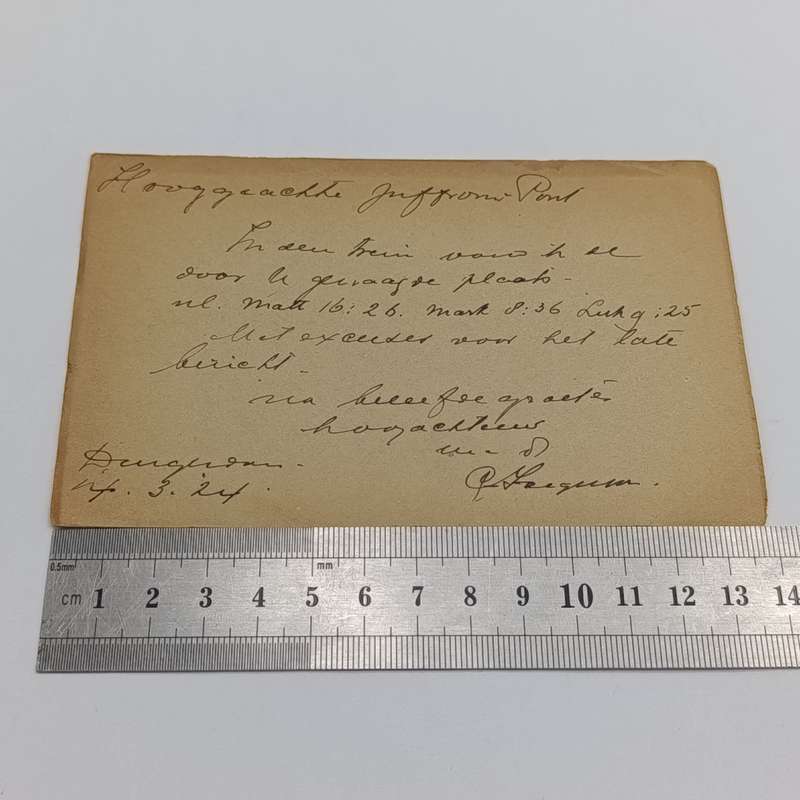 Hooggeachte Juffrouw Pont
In den trein vond ik de
door U gevraagde plaats -
nl. Matt 16:26. Mark 8:36 Luk 9:25
Met excuses voor het late
bericht -
na beleefde groeten
hoogachtend
14.3.24.
0.5mm mm
cm 1 2 3 4 5 6 7 8 9 10 11 12 13 14